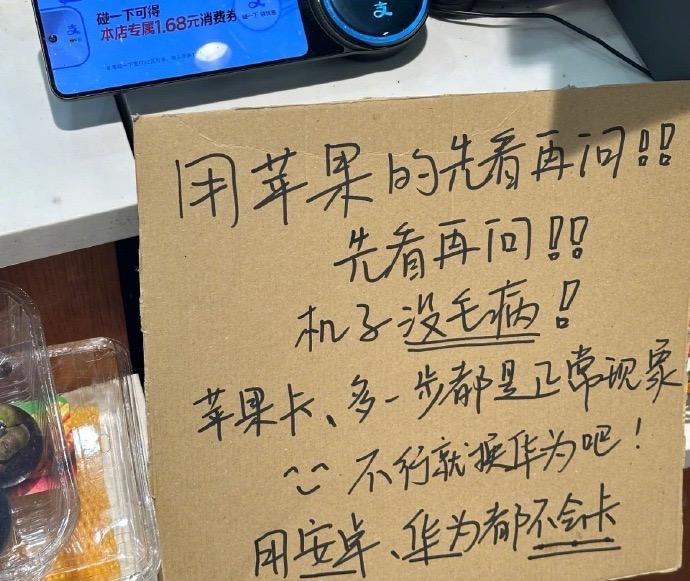 碰一下可得
本店专属1.68元消费券
碰一下 领优惠
用苹果的先看再问!!
先看再问!!
机子没毛病!
苹果卡、多一步都是正常现象
不行就换华为吧!
用安卓、华为都不会卡